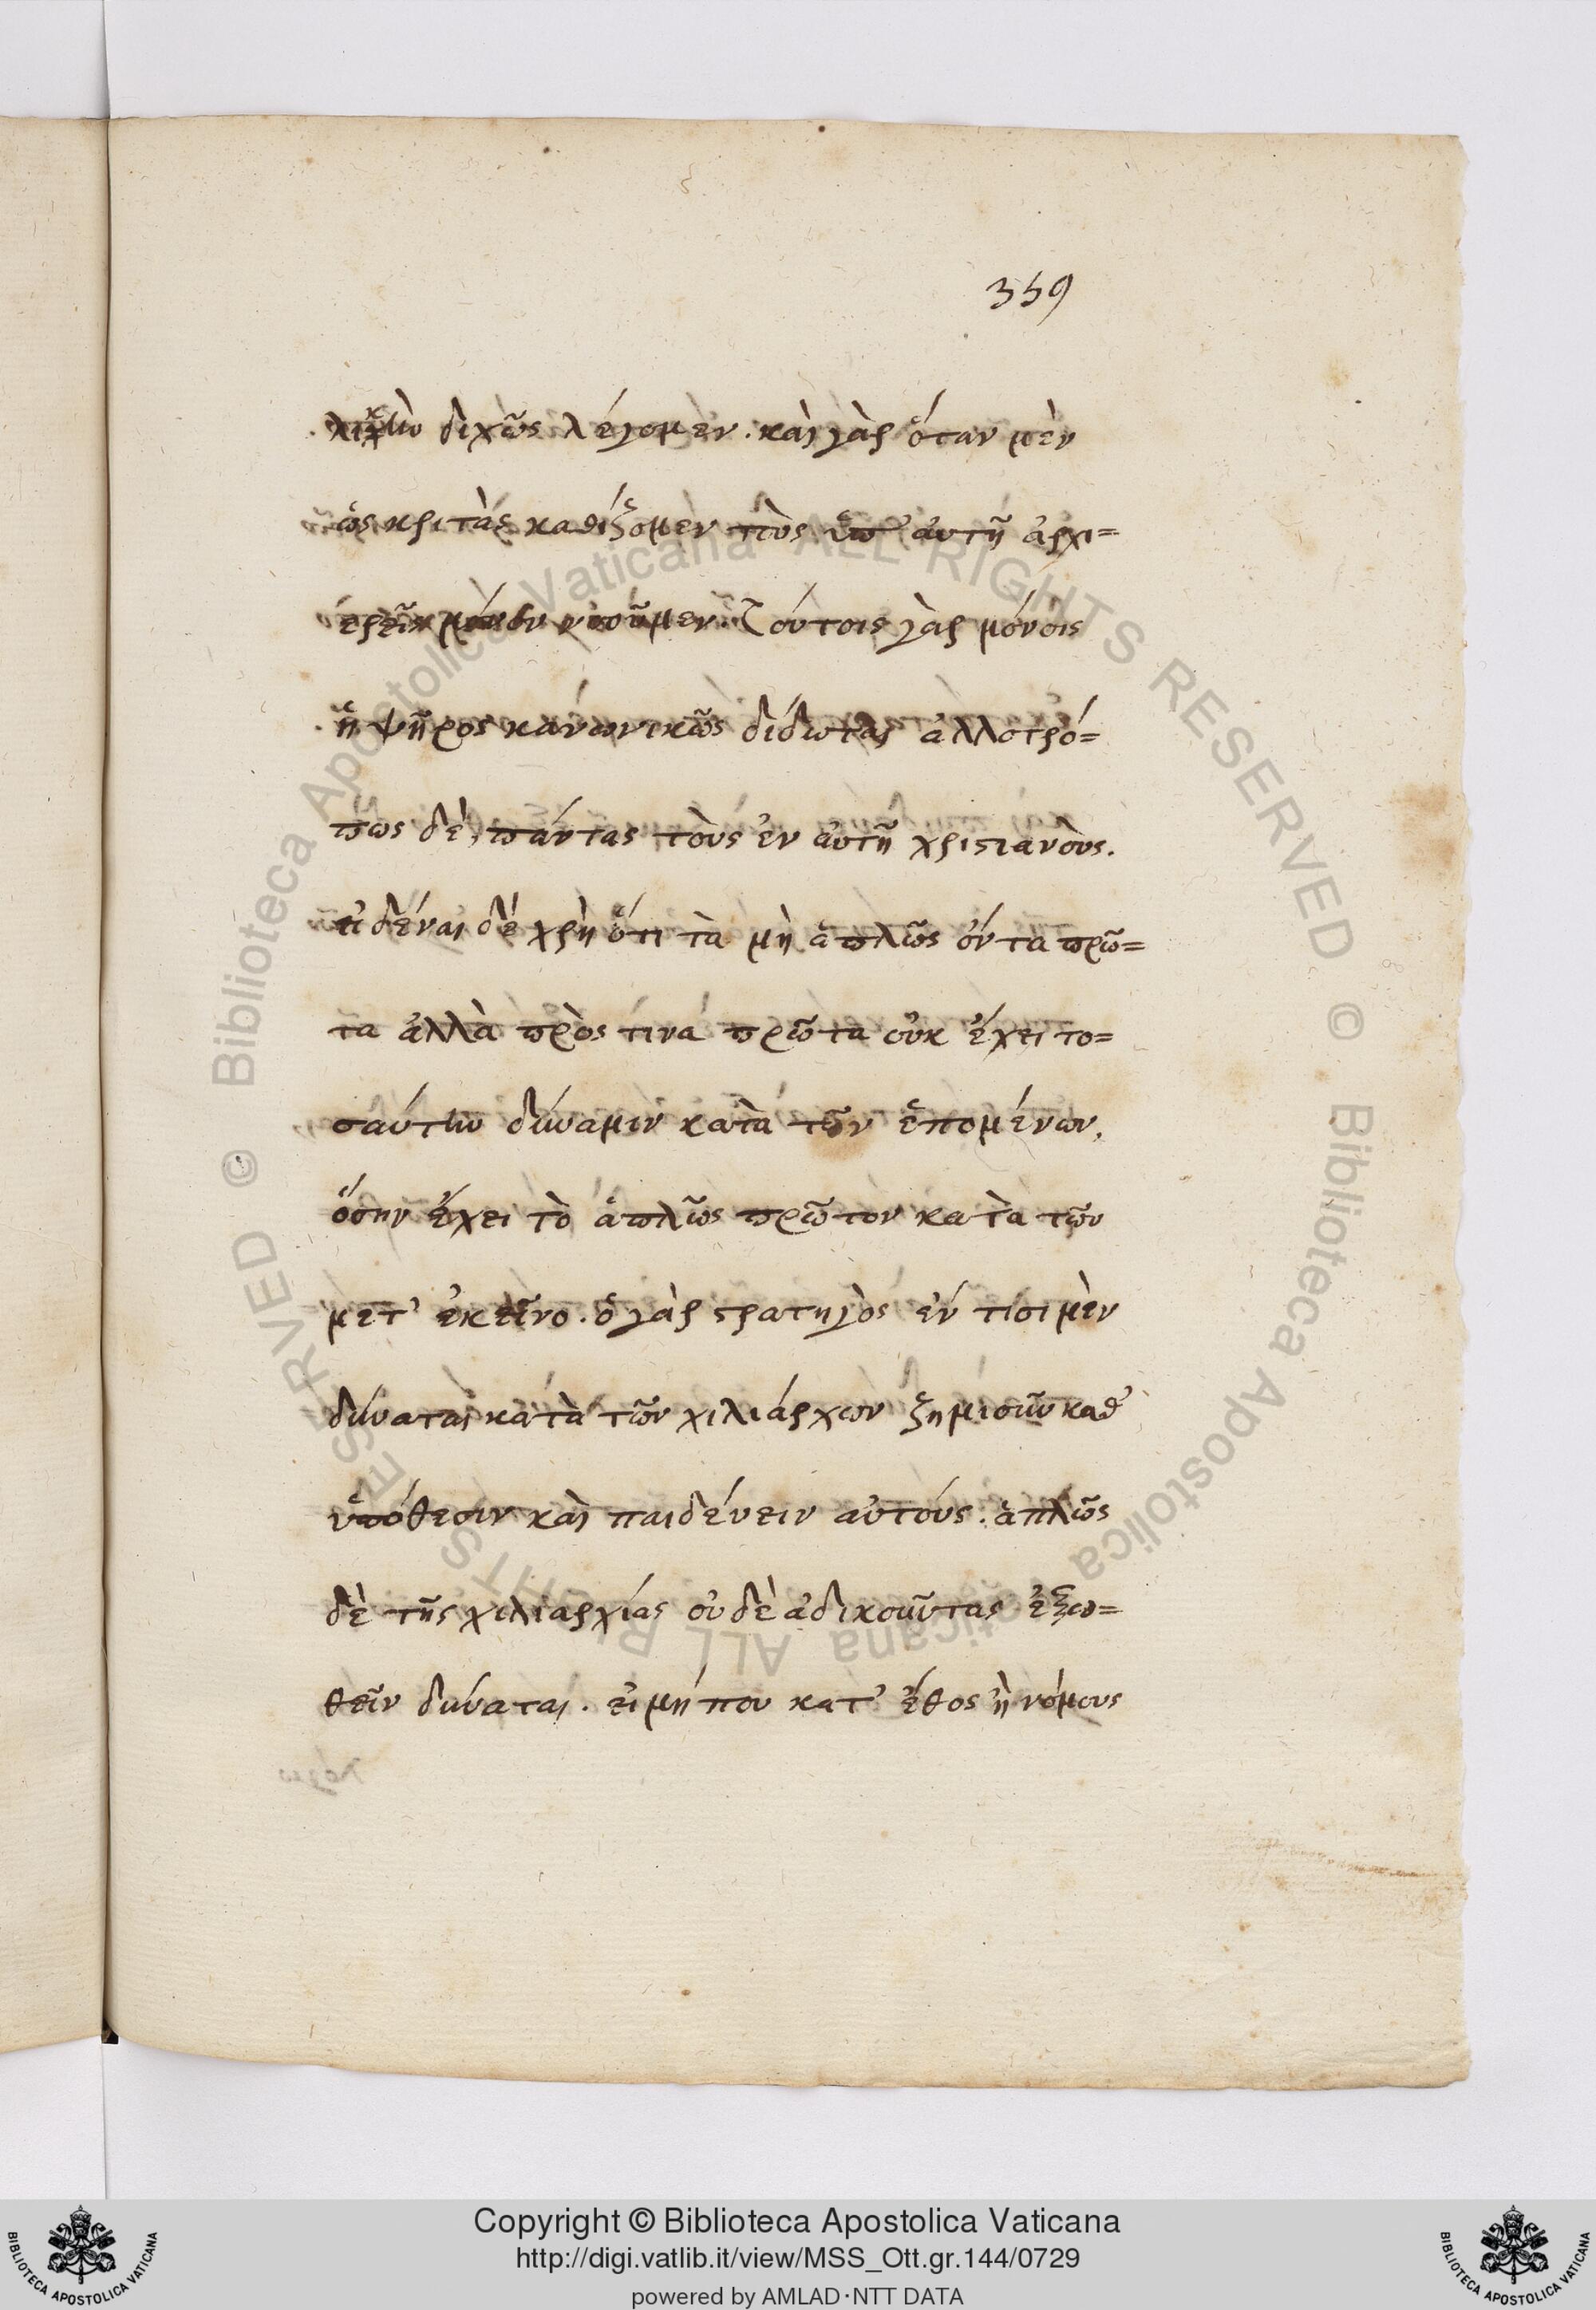 359
λικὴν διχῶς λέγομεν. καὶ γὰρ ὅταν μὲν
ὡς κριτὰς καθίζομεν τοὺς ὑπ' αὐτῇ ἀρχι=
ερεῖς μόνον νοοῦμεν. τούτοις γὰρ μόνοις
ἡ ψῆφος κανονικῶς δίδωται ἀλλοτρό=
πως δὲ, πάντας τοὺς ἐν αὐτῇ χριστιανοὺς.
εἰδέναι δὲ χρὴ ὅτι τὰ μὴ ἁπλῶς ὄντα πρῶ=
τα ἀλλὰ πρὸς τινά πρῶτα οὐκ ἔχει το=
σαύτην δύναμιν κατὰ τῶν ἑπομένων,
ὅσην ἔχει τὸ ἁπλῶς πρῶτον κατὰ τῶν
μετ' ἐκεῖνο. ὁ γὰρ στρατηγὸς ἐν τισι μὲν
δύναται κατὰ τῶν χιλιάρχων ζημιοῦν καθ'
ὑπόθεσιν καὶ παιδεύειν αὐτούς. ἁπλῶς
δὲ τῆς χιλιαρχίας οὐδὲ ἀδικοῦντας ἐξω=
θεῖν δύναται. εἰ μή που κατ' ἔθος ἢ νόμους
Copyright © Biblioteca Apostolica Vaticana
http://digi.vatlib.it/view/MSS_Ott.gr.144/0729
powered by AMLAD·NTT DATA
BIBLIOTECA APOSTOLICA VATICANA
BIBLIOTECA APOSTOLICA VATICANA
© Biblioteca Apostolica Vaticana ALL RIGHTS RESERVED
© Biblioteca Apostolica Vaticana ALL RIGHTS RESERVED